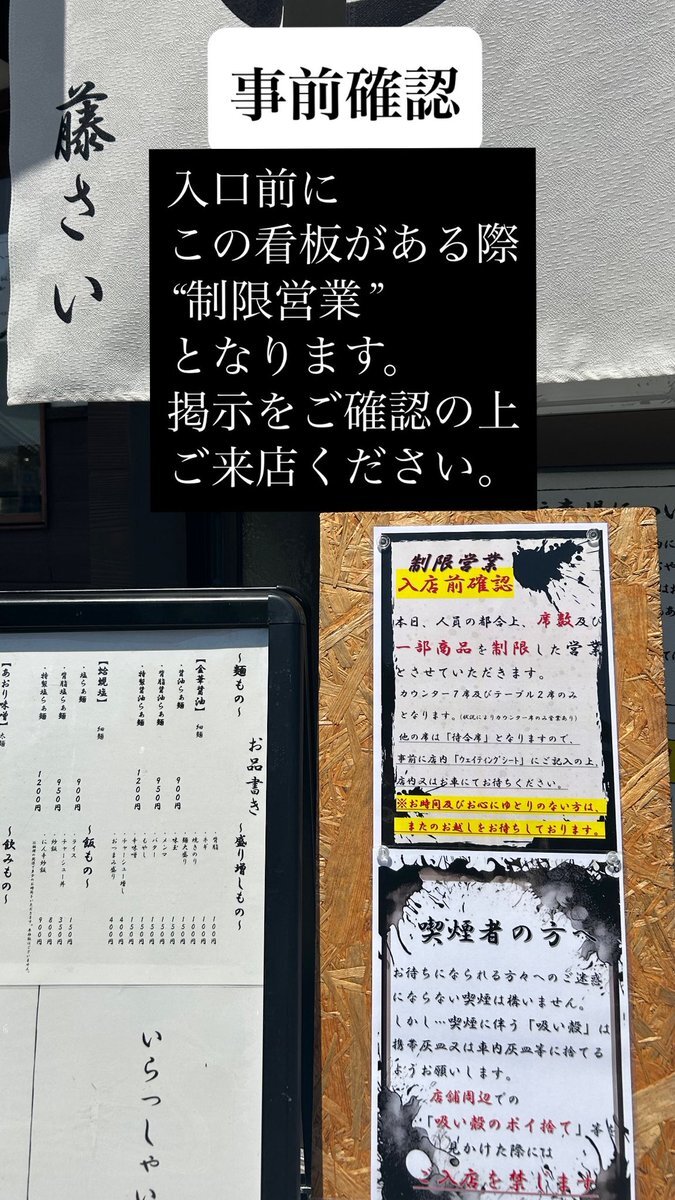 事前確認
入口前に
この看板がある際
“制限営業”
となります。
掲示をご確認の上
ご来店ください。
藤さい
制限営業
入店前確認
本日、人員の都合上、席数及び
一部商品を制限した営業
とさせていただきます。
カウンター7席及びテーブル2席のみ
となります。(状況によりカウンター席のみ営業あり)
他の席は「待合席」となりますので、
事前に店内「ウェイティングシート」にご記入の上、
店内又はお車にてお待ちください。
※お時間及びお心にゆとりのない方は、
またのお越しをお待ちしております。
喫煙者の方へ
お待ちになられる方々へのご迷惑
にならない喫煙は構いません。
しかし…喫煙に伴う「吸い殻」は
携帯灰皿又は車内灰皿等に捨てる
ようお願いします。
店舗周辺での
「吸い殻のポイ捨て」等を
見かけた際には
ご入店を禁します
お品書き
〜麺もの〜
【金華醤油】 細麺
・醤油らぁ麺 900円
・背脂醤油らぁ麺 950円
・特製醤油らぁ麺 1200円
【蛤蜆塩】 細麺
・塩らぁ麺 900円
・背脂塩らぁ麺 950円
・特製塩らぁ麺 1200円
【あおり味噌】太麺
〜盛り増しもの〜
・背脂 100円
・ネギ 100円
・焼きのり 100円
・麺大盛り 100円
・味玉 150円
・メンマ 150円
・バター 150円
・もやし 150円
・辛味噌 150円
・チャーシュー増し 400円
・おつまみ盛り 400円
〜飯もの〜
・ライス 150円
・チャーシュー丼 350円
・炒飯 800円
・にんにく炒飯 900円
〜飲みもの〜
いらっしゃい